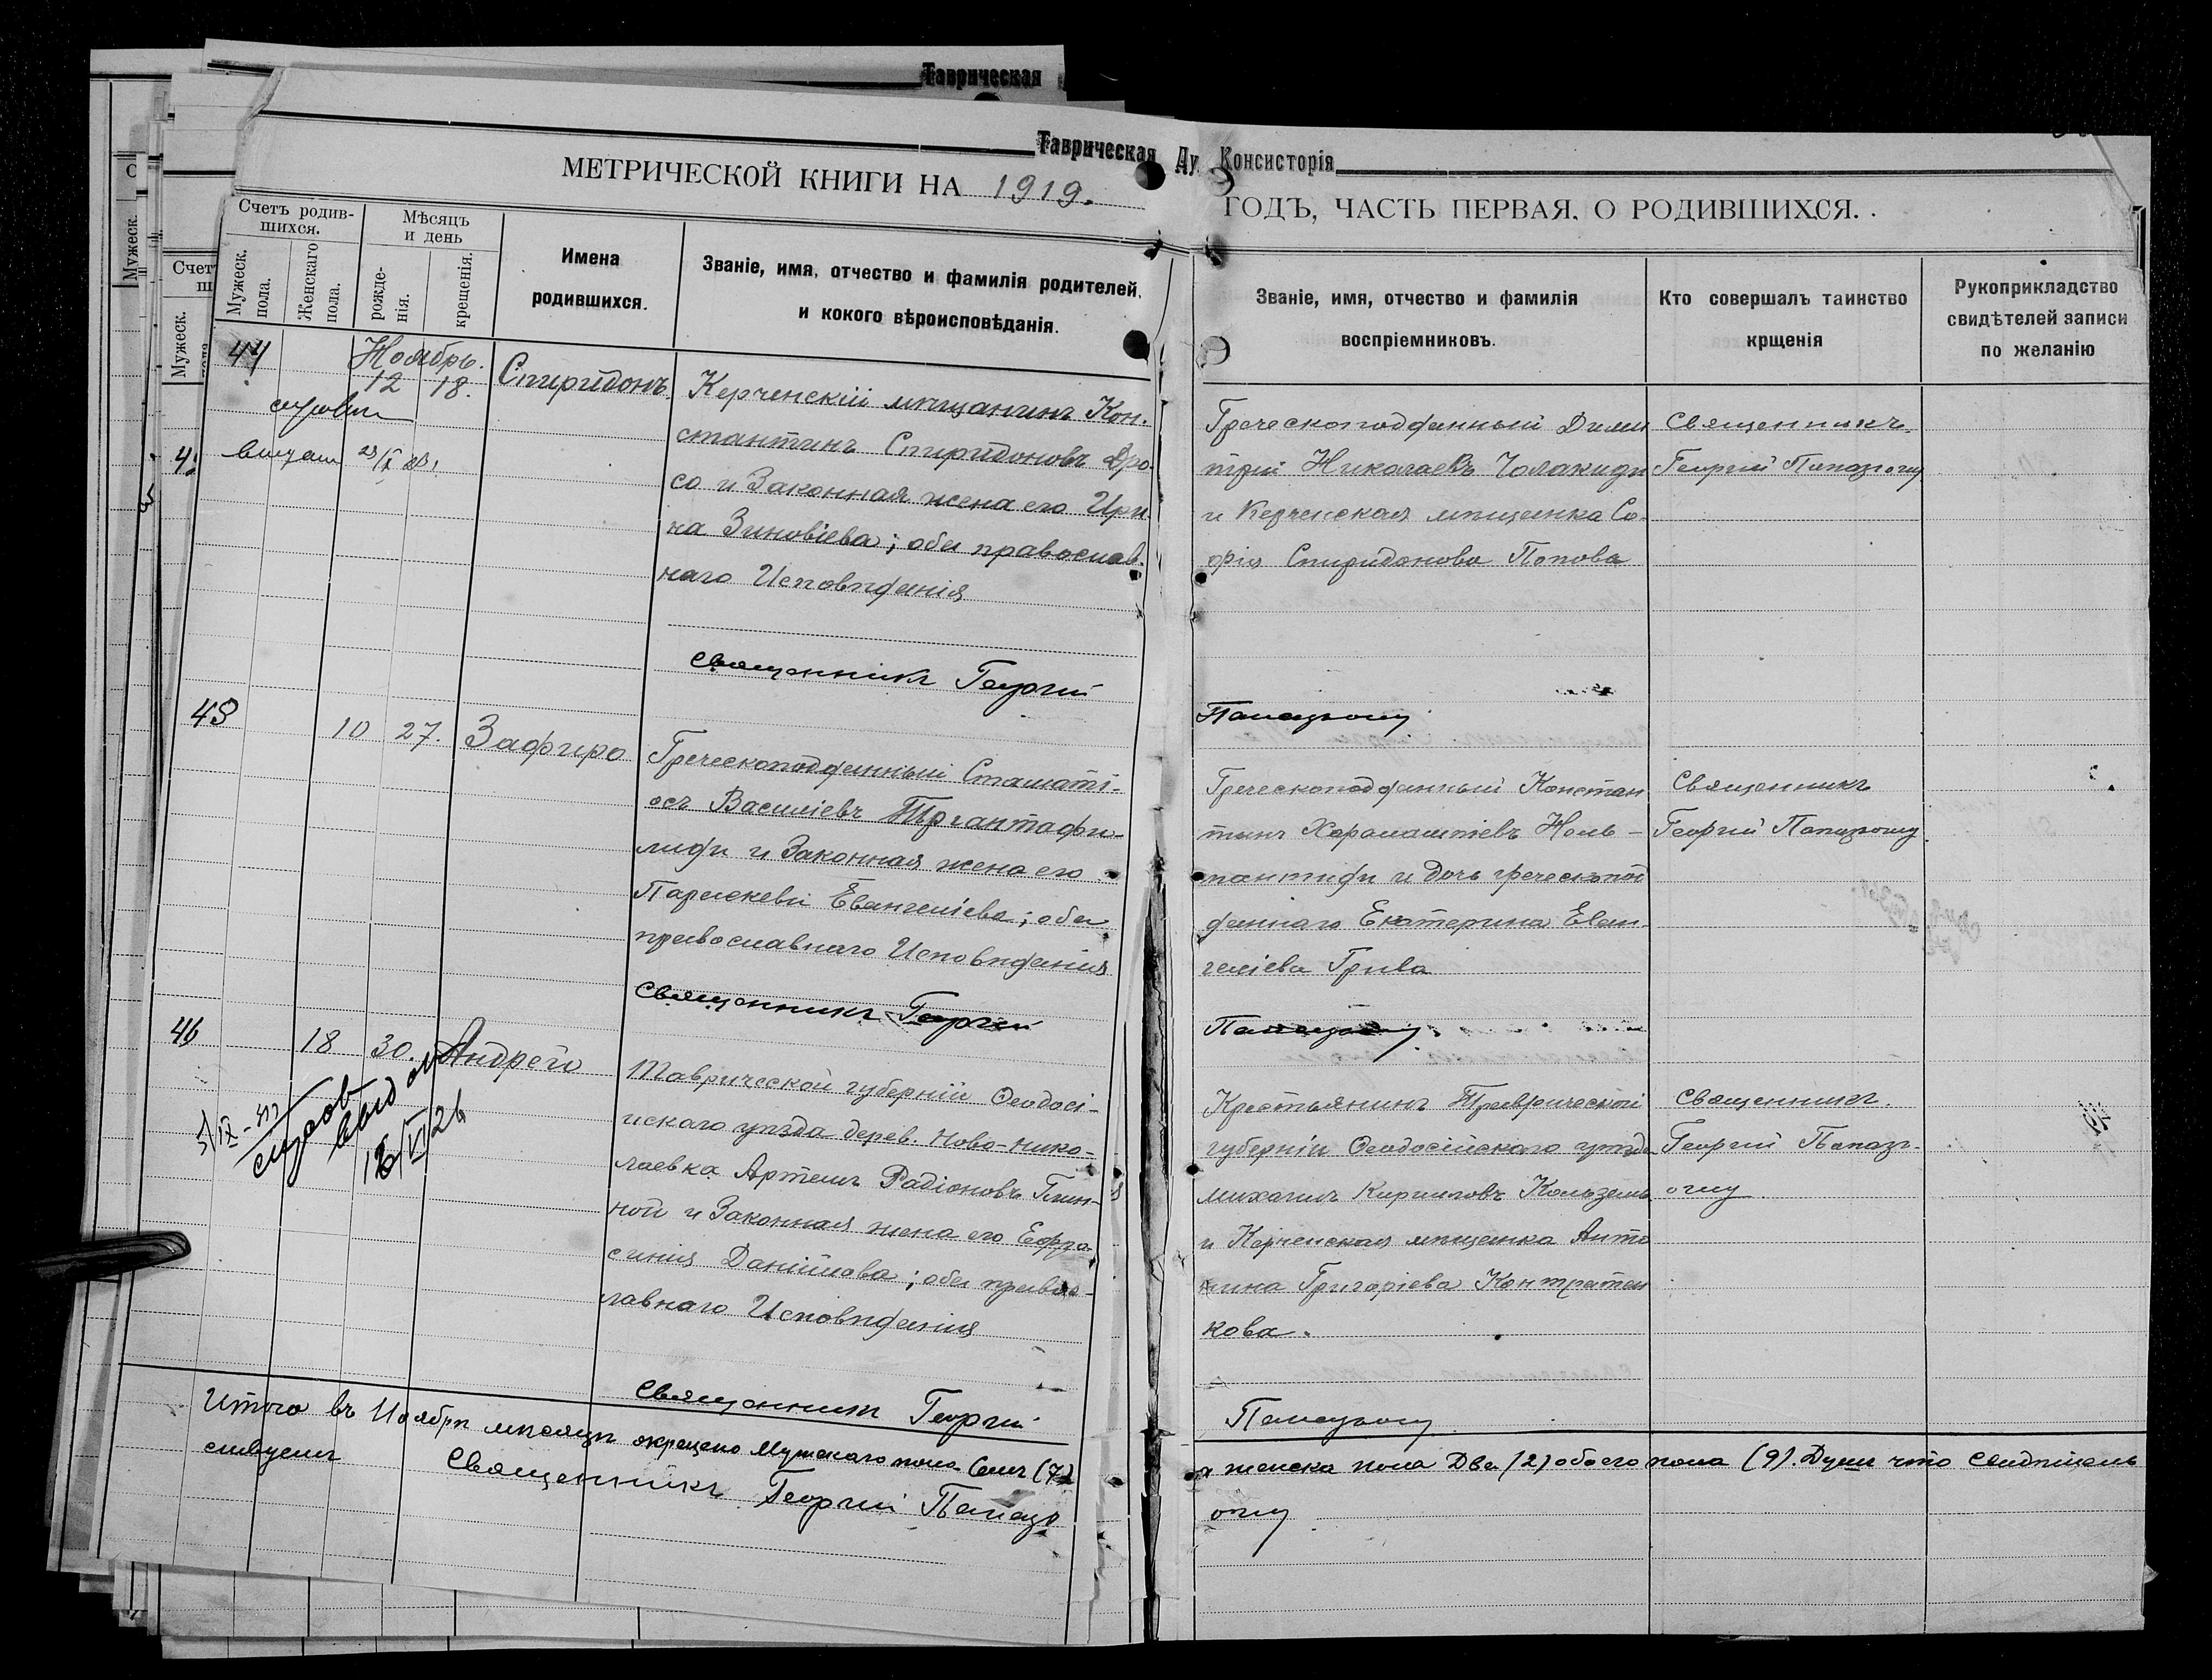 Таврическая
Таврическая Ду. Консисторія
МЕТРИЧЕСКОЙ КНИГИ НА 1919.
ГОДЪ, ЧАСТЬ ПЕРВАЯ, О РОДИВШИХСЯ.
Счетъ родив-
шихся.
Мужеск.
пола.
Женскаго
пола.
Мѣсяцъ
и день
рожде-
нія.
крещенія.
Имена
родившихся.
Званіе, имя, отчество и фамилія родителей,
и кокого вѣроисповѣданія.
Званіе, имя, отчество и фамилія
воспріемниковъ.
Кто совершалъ таинство
крщенія
Рукоприкладство
свидѣтелей записи
по желанію
Мужеск.
Счет
Мужеск.
44
Ноябрь.
12 18.
Спиридонъ
Керченскій мѣщанинъ Кон-
стантинъ Спиридоновъ Дро-
со и Законная жена его Ири-
на Зиновіева; оба православ-
наго Исповѣданія
Священникъ Георгій
Греческоподданный Дими
трій Николаевъ Чалакиди
и Керченская мѣщанка Со-
фія Спиридонова Попова
Папазъоглу
Священникъ
Георгій Папазъоглу
45
10 27.
Зафиро
Греческоподданный Стаматі-
осъ Василіевъ Тріантафи-
лиди и Законная жена его
Параскеви Евангеліева; оба
православнаго Исповѣданія
Священникъ Георгій
Греческоподданный Констан
тинъ Харалампіевъ
и дочь греческопод
даннаго Екатерина Еван-
геліева Грива
Папазъоглу
Священникъ
Георгій Папазъоглу
46
18 30.
Андрей
Таврической губерніи Ѳеодосі-
йскаго уѣзда дерев. Ново-Нико-
лаевка Артемъ Радіоновъ Глин-
ной и Законная жена его Ефро-
синія Даніилова; оба правос-
лавнаго Исповѣданія
Священникъ Георгій
Крестьянинъ Таврической
губерніи Ѳеодосійскаго уѣзда
Михаилъ Кирилловъ
и Керченская мѣщанка Анто
нина Григоріева Контратен
кова.
Папазъоглу
Священникъ
Георгій Папазъ-
оглу
Итого въ Ноябрѣ мѣсяцѣ окрещено Мужскаго пола Семь (7)
а женска пола Два (2) обоего пола (9). Душъ что Свидѣтель
ствуемъ
Священникъ Георгій Папазъ
оглу